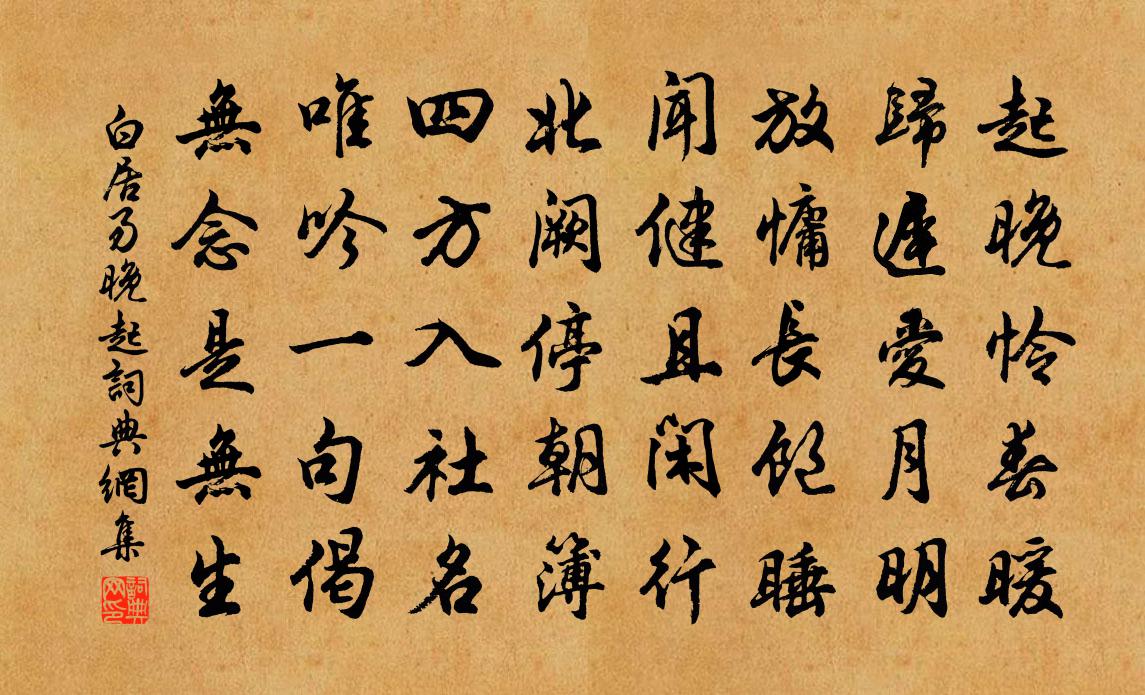 起晚怜春暖
歸遲愛月明
放慵長飽睡
聞健且閑行
北闕停朝簿
四方入社名
唯吟一句偈
無念是無生
白居易晚起詞典網集
詞典网印